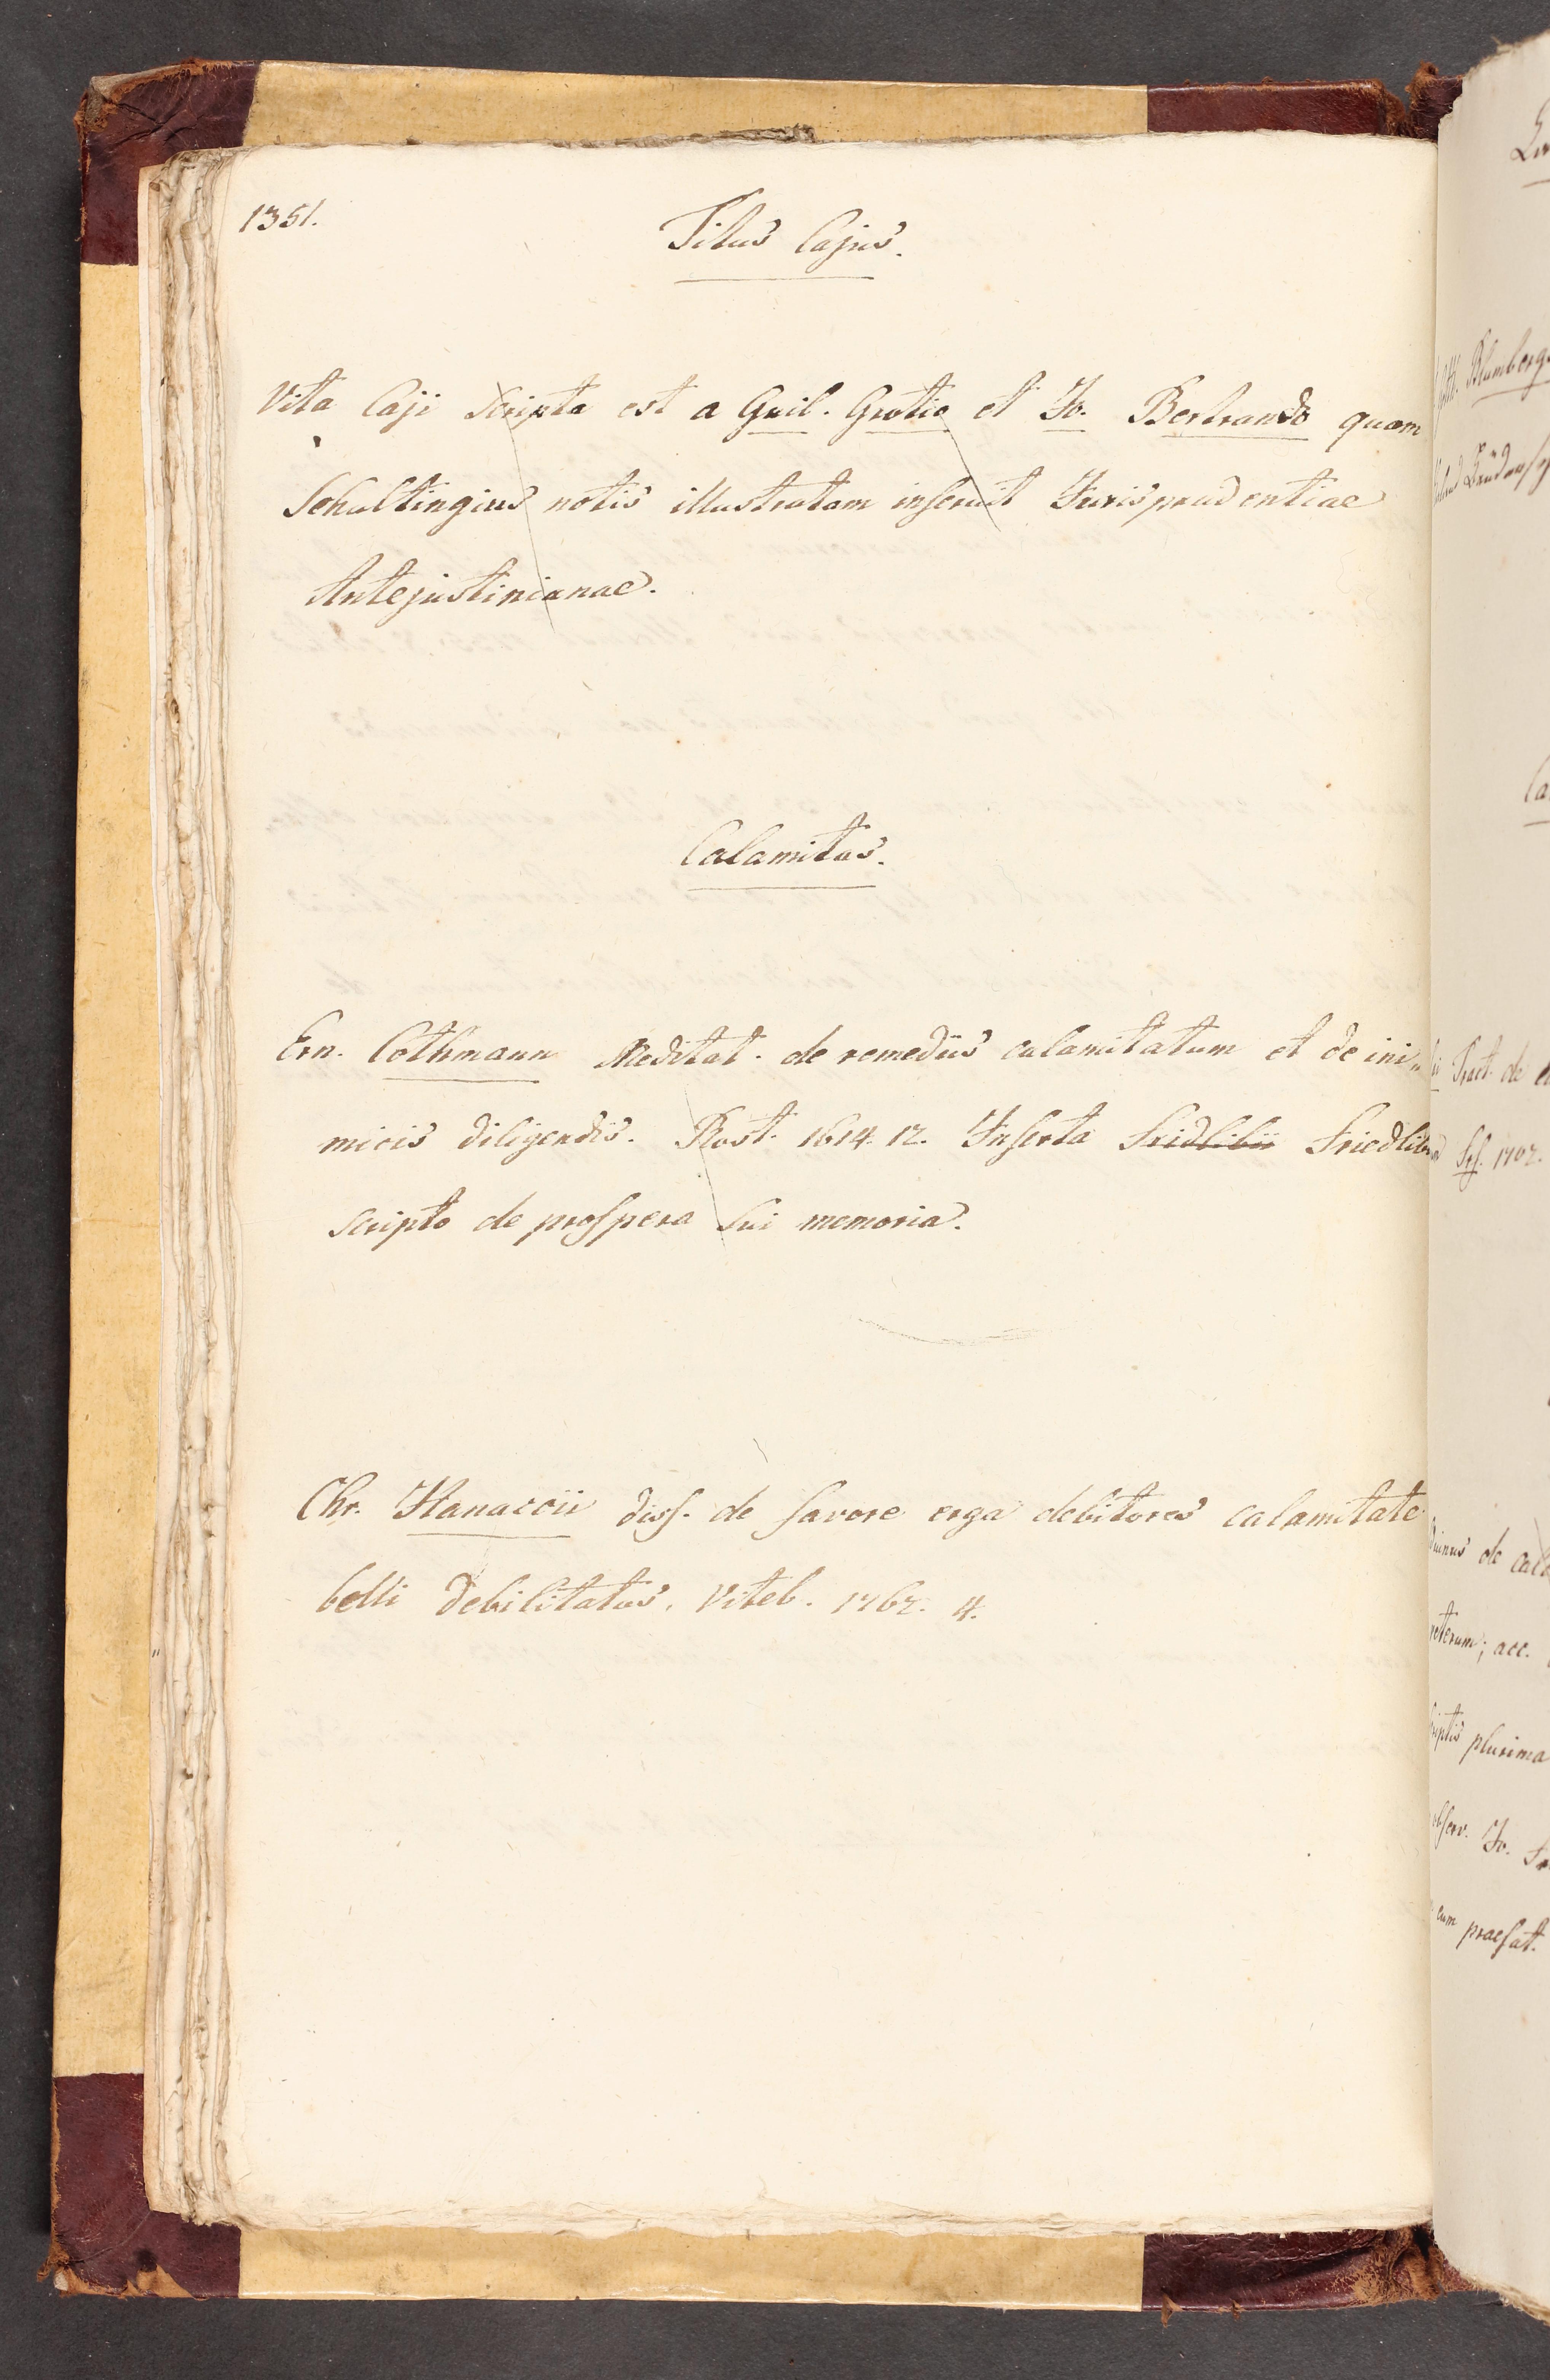 1351.
Titus Cajus.
Vita Caji scripta est a Guil. Grotio et Jo. Bertrando quam
Schultingius notis illustratam inseruit Jurisprudentiae
Antejustinianae.
Calamitas.
Ern. Cothmann Meditat. de remediis calamitatum et de ini„
micis diligendis. Rost. 1614. 12. Inserta Fridlibii Friedlibii
scripto de prospera sui memoria.
Chr. Hanaccii diss. de favore erga debitores calamitate
belli debilitatos. Viteb. 1767. 4.
Blumberg
Tract. de
1702.
de
acc.
plurima
observ. Jo.
cum praefat.